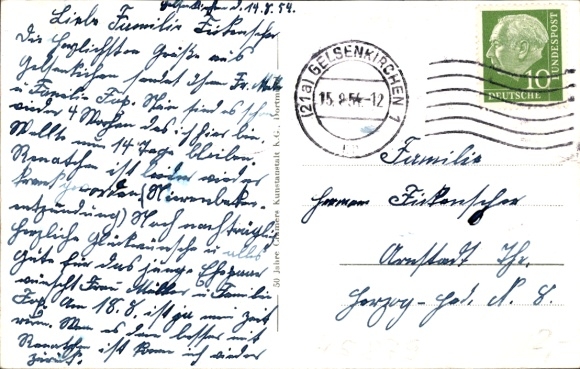 Gelsenkirchen d. 14.8.54.
Liebe Familie Fickenscher
Die herzlichsten Grüße aus
Gelsenkirchen sendet Ihnen Fr. Müller
u. Familie Fup. Nun sind es schon
wieder 4 Wochen das ich hier bin.
Wollte nur 14 Tage bleiben.
Renatchen ist leider wieder
krank geworden (Nierenbecken-
entzündung) Noch nachträglich
herzliche Glückwünsche u. alles
Gute für das junge Ehepaar
wünscht Frau Müller u. Familie
Fup. Am 18.8. ist ja nun Zeit
rum. Wenn es dem besser mit
Renatchen ist komm ich wieder
zurück.
50 Jahre Cramers Kunstanstalt K.G., Dortmund
(21a) GELSENKIRCHEN 1
15.8.54-12
10
DEUTSCHE BUNDESPOST
Familie
Hermann Fickenscher
Arnstadt Thr.
Herzog-Hed. N. 8.